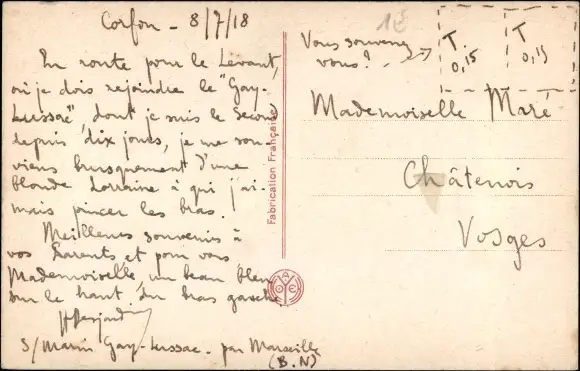 Corfou - 8/7/18
En route pour le Levant,
où je dois rejoindre le "Gay-
Lussac", dont je suis le second
depuis dix jours, je me sou-
viens brusquement d'une
blonde Lorraine à qui j'ai-
mais pincer les bras.
Meilleurs souvenirs à
vos Parents et pour vous
Mademoiselle, un beau bleu
sur le haut du bras gauche
S/Marin Gay-Lussac. par Marseille
(B.N)
Fabrication Française
Vous souvenez
vous?
T.
0,15
T.
0,15
Mademoiselle Maré
Châtenois
Vosges